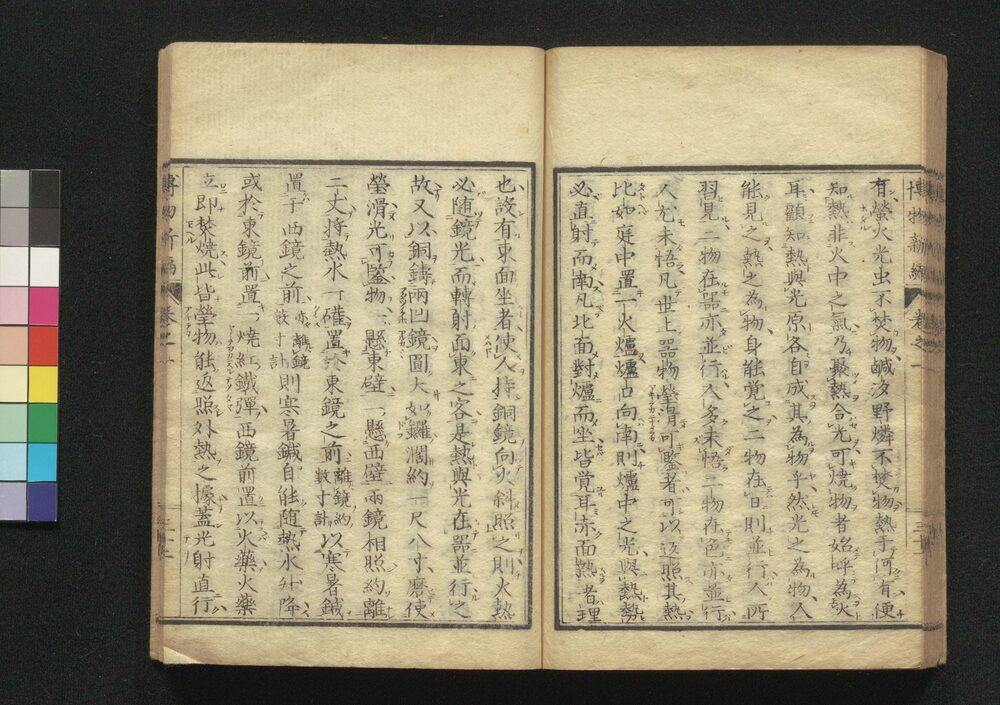 博物新編 卷之一
有螢火光虫不焚物鹹汐野燐不焚物熱于何有便
知熱非火中之氣乃聚熱合光可燒物者始呼為火
耳顧知熱與光原各自成其為物乎然光之為物人
能見之熱之為物身能覚之二物在日則並行人所
習見二物在器亦並行人多未悟二物在色亦並行
人尤未悟凡世上器物瑩滑可鑒者可以返照其熱
比如庭中置一火爐爐口向南則爐中之光與熱勢
必直射而南凡北面對爐而坐皆覚耳赤面熱者理
也設有東面坐者使人持銅鏡向火斜照之則火熱
必随鏡光而轉射面東之客是熱與光在器並行之
故又以銅鑄兩凹鏡圓大如鑼濶約一尺八寸磨使
瑩滑光可鑒物一懸東壁一懸西壁兩鏡相照約離
二丈将熱水一礶置於東鏡之前離鏡約數寸計以寒暑鍼
置于西鏡之前亦離鏡數寸計則寒暑鍼自能随熱水升降
或於東鏡前置一燒紅鐵彈西鏡前置以火藥火藥
立即焚燒此皆瑩物能返照外熱之據蓋光射直行
博物新編 卷之一